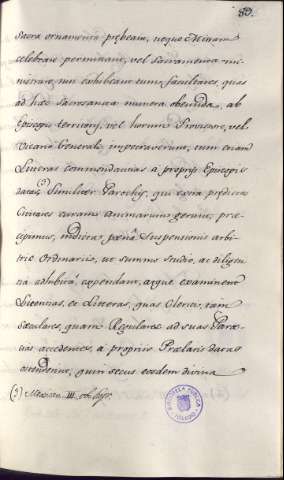 89.
sacra ornamenta præbeant, neque Missam
celebrare permittant, vel Sacramenta mi-
nistrare, nisi exhibeant tum facultates, quas
ad hæc sacrosancta munera obeunda, ab
Episcopo territorij, vel horum Provisore, vel
Vicario Generali impetraverunt, tum etiam
Litteras commendatitias a proprijs Episcopis
datas. Similiter Parochis, qui extra prædictas
Civitates curam animarum gerunt, præ-
cipimus, indicta pœna Suspensionis arbi-
trio Ordinarij, ut summo studio, ac diligen-
tia adhibita, expendant, atque examinent
Licentias, et Litteras, quas Clerici, tam
sæculares, quam Regulares ad suas Paræ-
cias accedentes, a proprijs Prælatis datas
ostenderint, quin secus eosdem divina
(3) Mexican. III.
BIBLIOTECA PUBLICA
TOLEDO